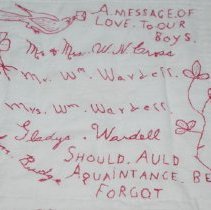 A MESSAGE OF
LOVE. TO OUR
BOYS.
Mr & Mrs. W. H. Cross
Mr. Wm. Wardell.
Mrs. Wm. Wardell.
Gladys. Wardell
SHOULD. AULD
AQUAINTANCE. BE
FORGOT